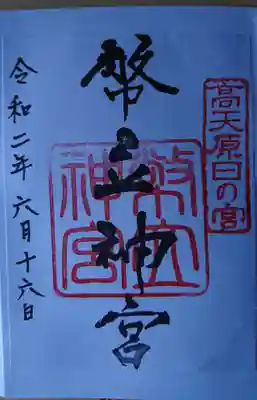 高天原日の宮
幣立神宮
幣立神宮
令和二年六月十六日